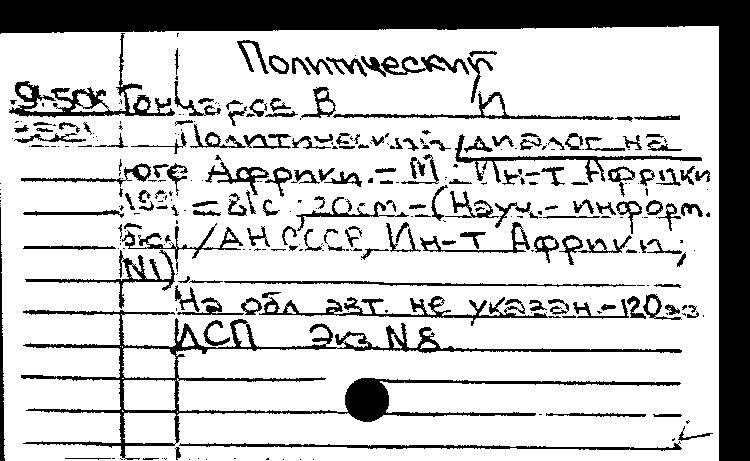 Политический
Гончаров В И
Политический диалог на
юге Африки. – М : Ин-т Африки
= 81с ; 20см. – (Науч.- информ.
бюл. / АН СССР, Ин-т Африки ;
N1).
На обл авт. не указан. – 120экз
ДСП Экз N 8.